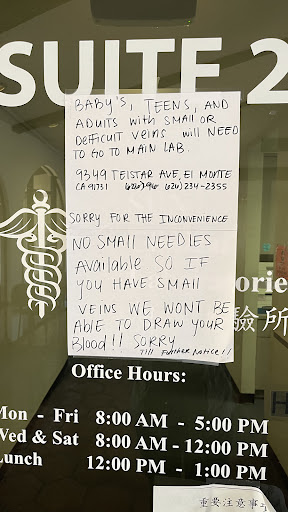 SUITE 2
BABY'S, TEENS, AND
ADULTS with SMAll OR
DefficuIT VEINS will NEED
TO GO TO MAIN LAB.
9349 TELSTAR AVE, El MONTE
CA 91731 (626) 234-2355
SORRY FOR THE INCONVENIENCE
NO SMALL NEEDLES
Available SO IF
you HAVE SMAll
VEINS WE WONT BE
AblE TO DRAW YOUR
Blood!! SORRY
Till Further Notice!!
ories
驗所
Office Hours:
Mon - Fri 8:00 AM - 5:00 PM
Wed & Sat 8:00 AM - 12:00 PM
Lunch 12:00 PM - 1:00 PM
重要注意事